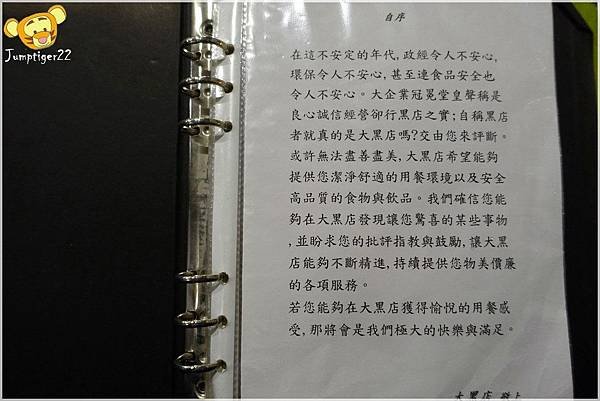 Jumptiger22
自序
在這不安定的年代,政經令人不安心,
環保令人不安心,甚至連食品安全也
令人不安心。大企業冠冕堂皇聲稱是
良心誠信經營卻行黑店之實;自稱黑店
者就真的是大黑店嗎?交由您來評斷。
或許無法盡善盡美,大黑店希望能夠
提供您潔淨舒適的用餐環境以及安全
高品質的食物與飲品。我們確信您能
夠在大黑店發現讓您驚喜的某些事物
,並盼求您的批評指教與鼓勵,讓大黑
店能夠不斷精進,持續提供您物美價廉
的各項服務。
若您能夠在大黑店獲得愉悅的用餐感
受,那將會是我們極大的快樂與滿足。
大黑店 敬上